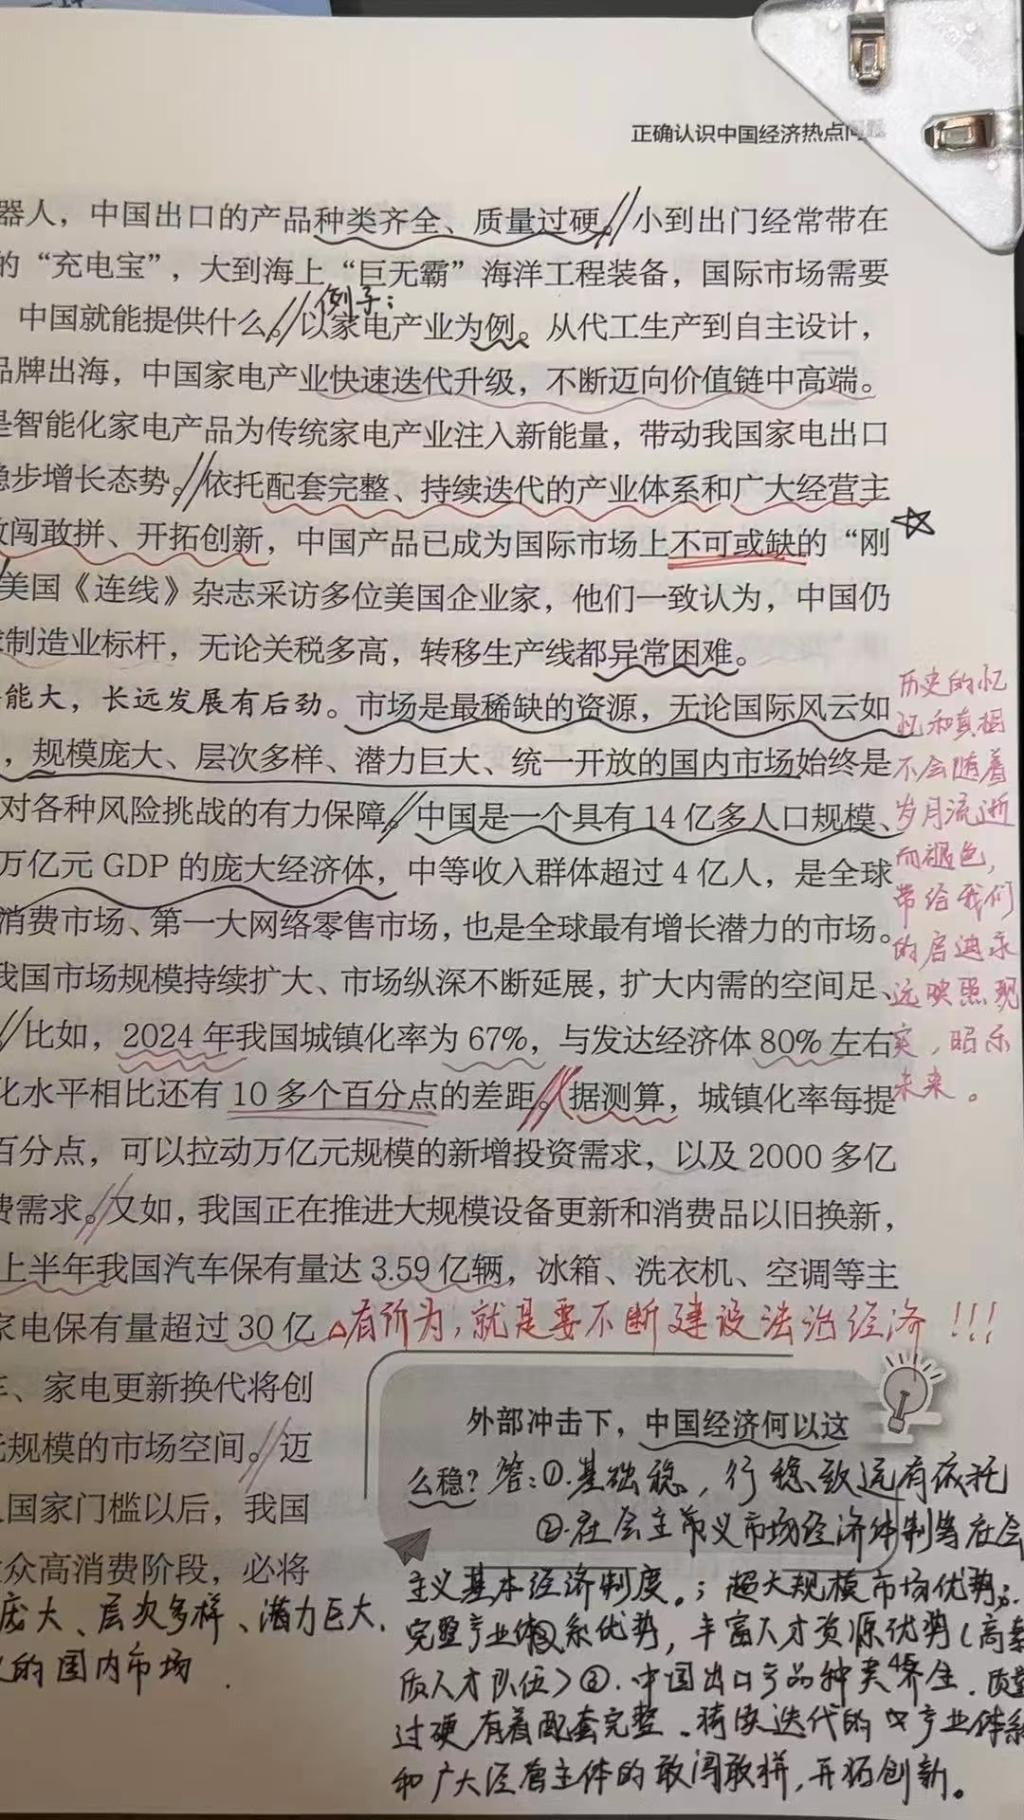 正确认识中国经济热点问题
器人，中国出口的产品种类齐全、质量过硬。小到出门经常带在
的“充电宝”，大到海上“巨无霸”海洋工程装备，国际市场需要
例子：
中国就能提供什么。以家电产业为例。从代工生产到自主设计，
品牌出海，中国家电产业快速迭代升级，不断迈向价值链中高端。
是智能化家电产品为传统家电产业注入新能量，带动我国家电出口
稳步增长态势。依托配套完整、持续迭代的产业体系和广大经营主
敢闯敢拼、开拓创新，中国产品已成为国际市场上不可或缺的“刚
美国《连线》杂志采访多位美国企业家，他们一致认为，中国仍
制造业标杆，无论关税多高，转移生产线都异常困难。
能大，长远发展有后劲。市场是最稀缺的资源，无论国际风云如
，规模庞大、层次多样、潜力巨大、统一开放的国内市场始终是
对各种风险挑战的有力保障。中国是一个具有14亿多人口规模、
万亿元GDP的庞大经济体，中等收入群体超过4亿人，是全球
消费市场、第一大网络零售市场，也是全球最有增长潜力的市场。
我国市场规模持续扩大、市场纵深不断延展，扩大内需的空间足、
比如，2024年我国城镇化率为67%，与发达经济体80%左右
化水平相比还有10多个百分点的差距。据测算，城镇化率每提
百分点，可以拉动万亿元规模的新增投资需求，以及2000多亿
费需求。又如，我国正在推进大规模设备更新和消费品以旧换新，
上半年我国汽车保有量达3.59亿辆，冰箱、洗衣机、空调等主
家电保有量超过30亿
车、家电更新换代将创
元规模的市场空间。迈
国家门槛以后，我国
众高消费阶段，必将
庞大、层次多样、潜力巨大、
的国内市场．
历史的忆
忆和真相
不会随着
岁月流逝
而褪色，
带给我们
的启迪永
远映照现
实，昭示
未来。
有所为，就是要不断建设法治经济！！！
外部冲击下，中国经济何以这
么稳？答：①.基础稳，行稳致远有依托
②.在社会主义市场经济体制等社会
主义基本经济制度。；超大规模市场优势；
完整产业体系优势，丰富人才资源优势（高素
质人才队伍）③.中国出口产品种类齐全．质量
过硬有着配套完整、持续迭代的产业体系
和广大经营主体的敢闯敢拼，开拓创新。
45